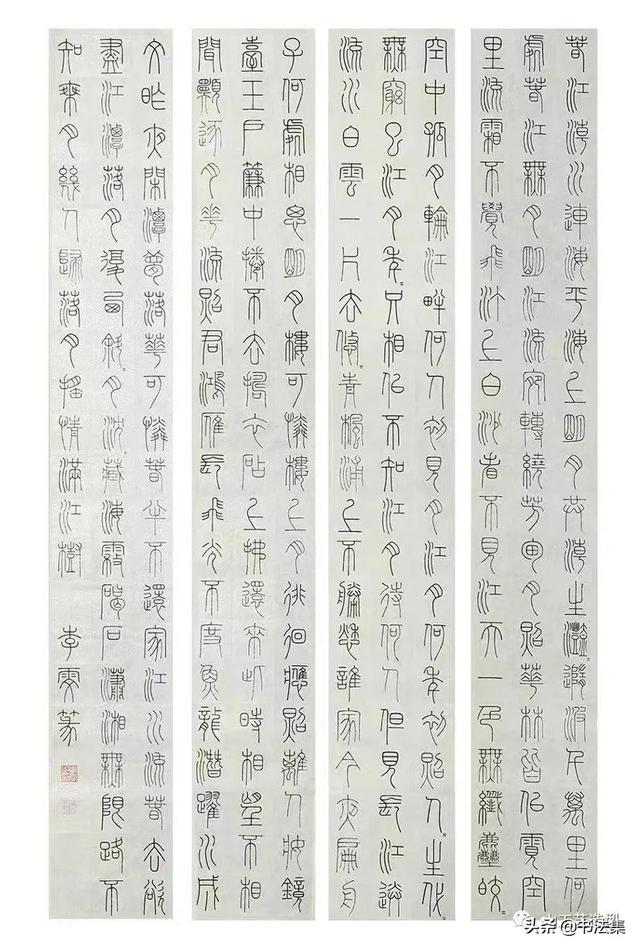 春江潮水連海平海上明月共潮生灩〻隨波千萬里何
處春江無月明江流宛轉繞芳甸月照華林皆似霰空
里流霜不覺飛汀上白沙看不見江天一色無纖塵皎〻
空中孤月輪江畔何人初見月江月何年初照人〻生代〻
無窮已江月年〻只相似不知江月待何人但見長江送
流水白雲一片去悠〻青楓浦上不勝愁誰家今夜扁舟
子何處相思明月樓可憐樓上月徘徊應照離人妝鏡
臺玉戶簾中捲不去擣衣砧上拂還來此時相望不相
聞願逐月華流照君鴻雁長飛光不度魚龍潛躍水成
文昨夜閑潭夢落華可憐春半不還家江水流春去欲
盡江潭落月復西斜〻月沈〻藏海霧碣石瀟湘無限路不
知乘月幾人歸落月搖情滿江樹 李雯篆
头条 @书法集